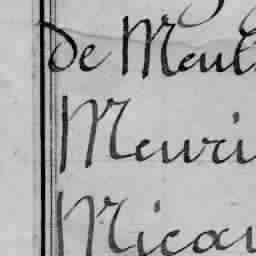 De Meul
Meuri
Micau